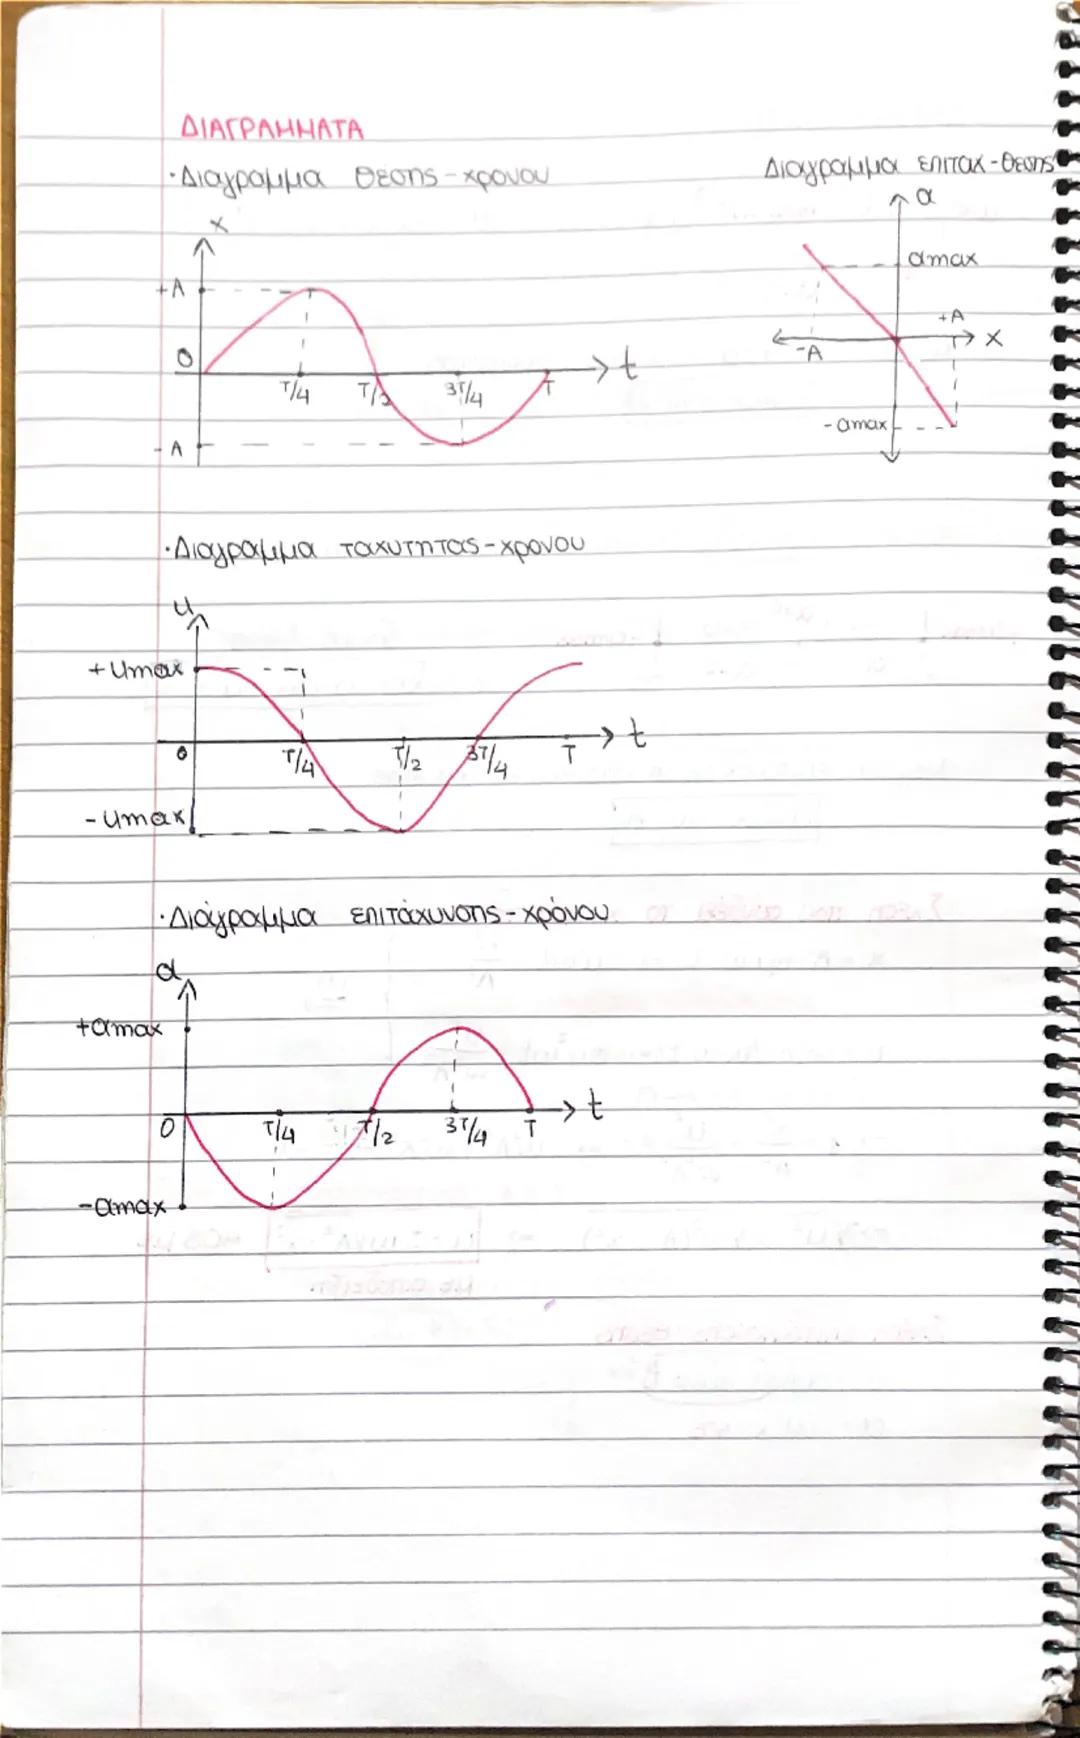 ΔΙΑΓΡΑΜΜΑΤΑ
·Διαγραμμα θεσης-χρονου
x
+A
0
T/4
T/2
3T/4
T
t
-A
Διαγραμμα επιταχ-θεσης
α
αmax
+A
x
-A
-αmax
·Διαγραμμα ταχυτητας-χρονου
u
+umax
0
T/4
T/2
3T/4
T
t
-umax
·Διάγραμμα επιτάχυνσης-χρόνου
α
+αmax
0
T/4
T/2
3T/4
T
t
-αmax